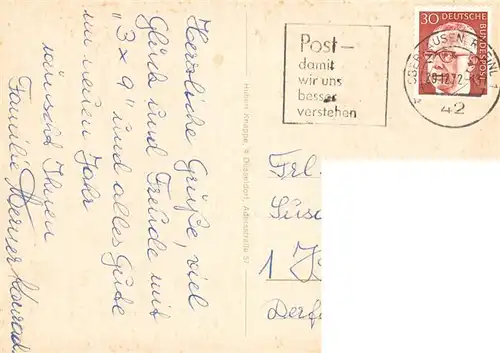 Herzliche Grüße, viel
Glück und Freude mit
"3 x 9" und alles Gute
im neuen Jahr
wünscht Ihnen
Familie Werner Konrad
Hubert Knappe, Düsseldorf, Adersstraße 57
Post-
damit
wir uns
besser
verstehen
30 DEUTSCHE
BUNDESPOST
OBERHAUSEN, RHEINL 1
12.72
42
Frl.
1